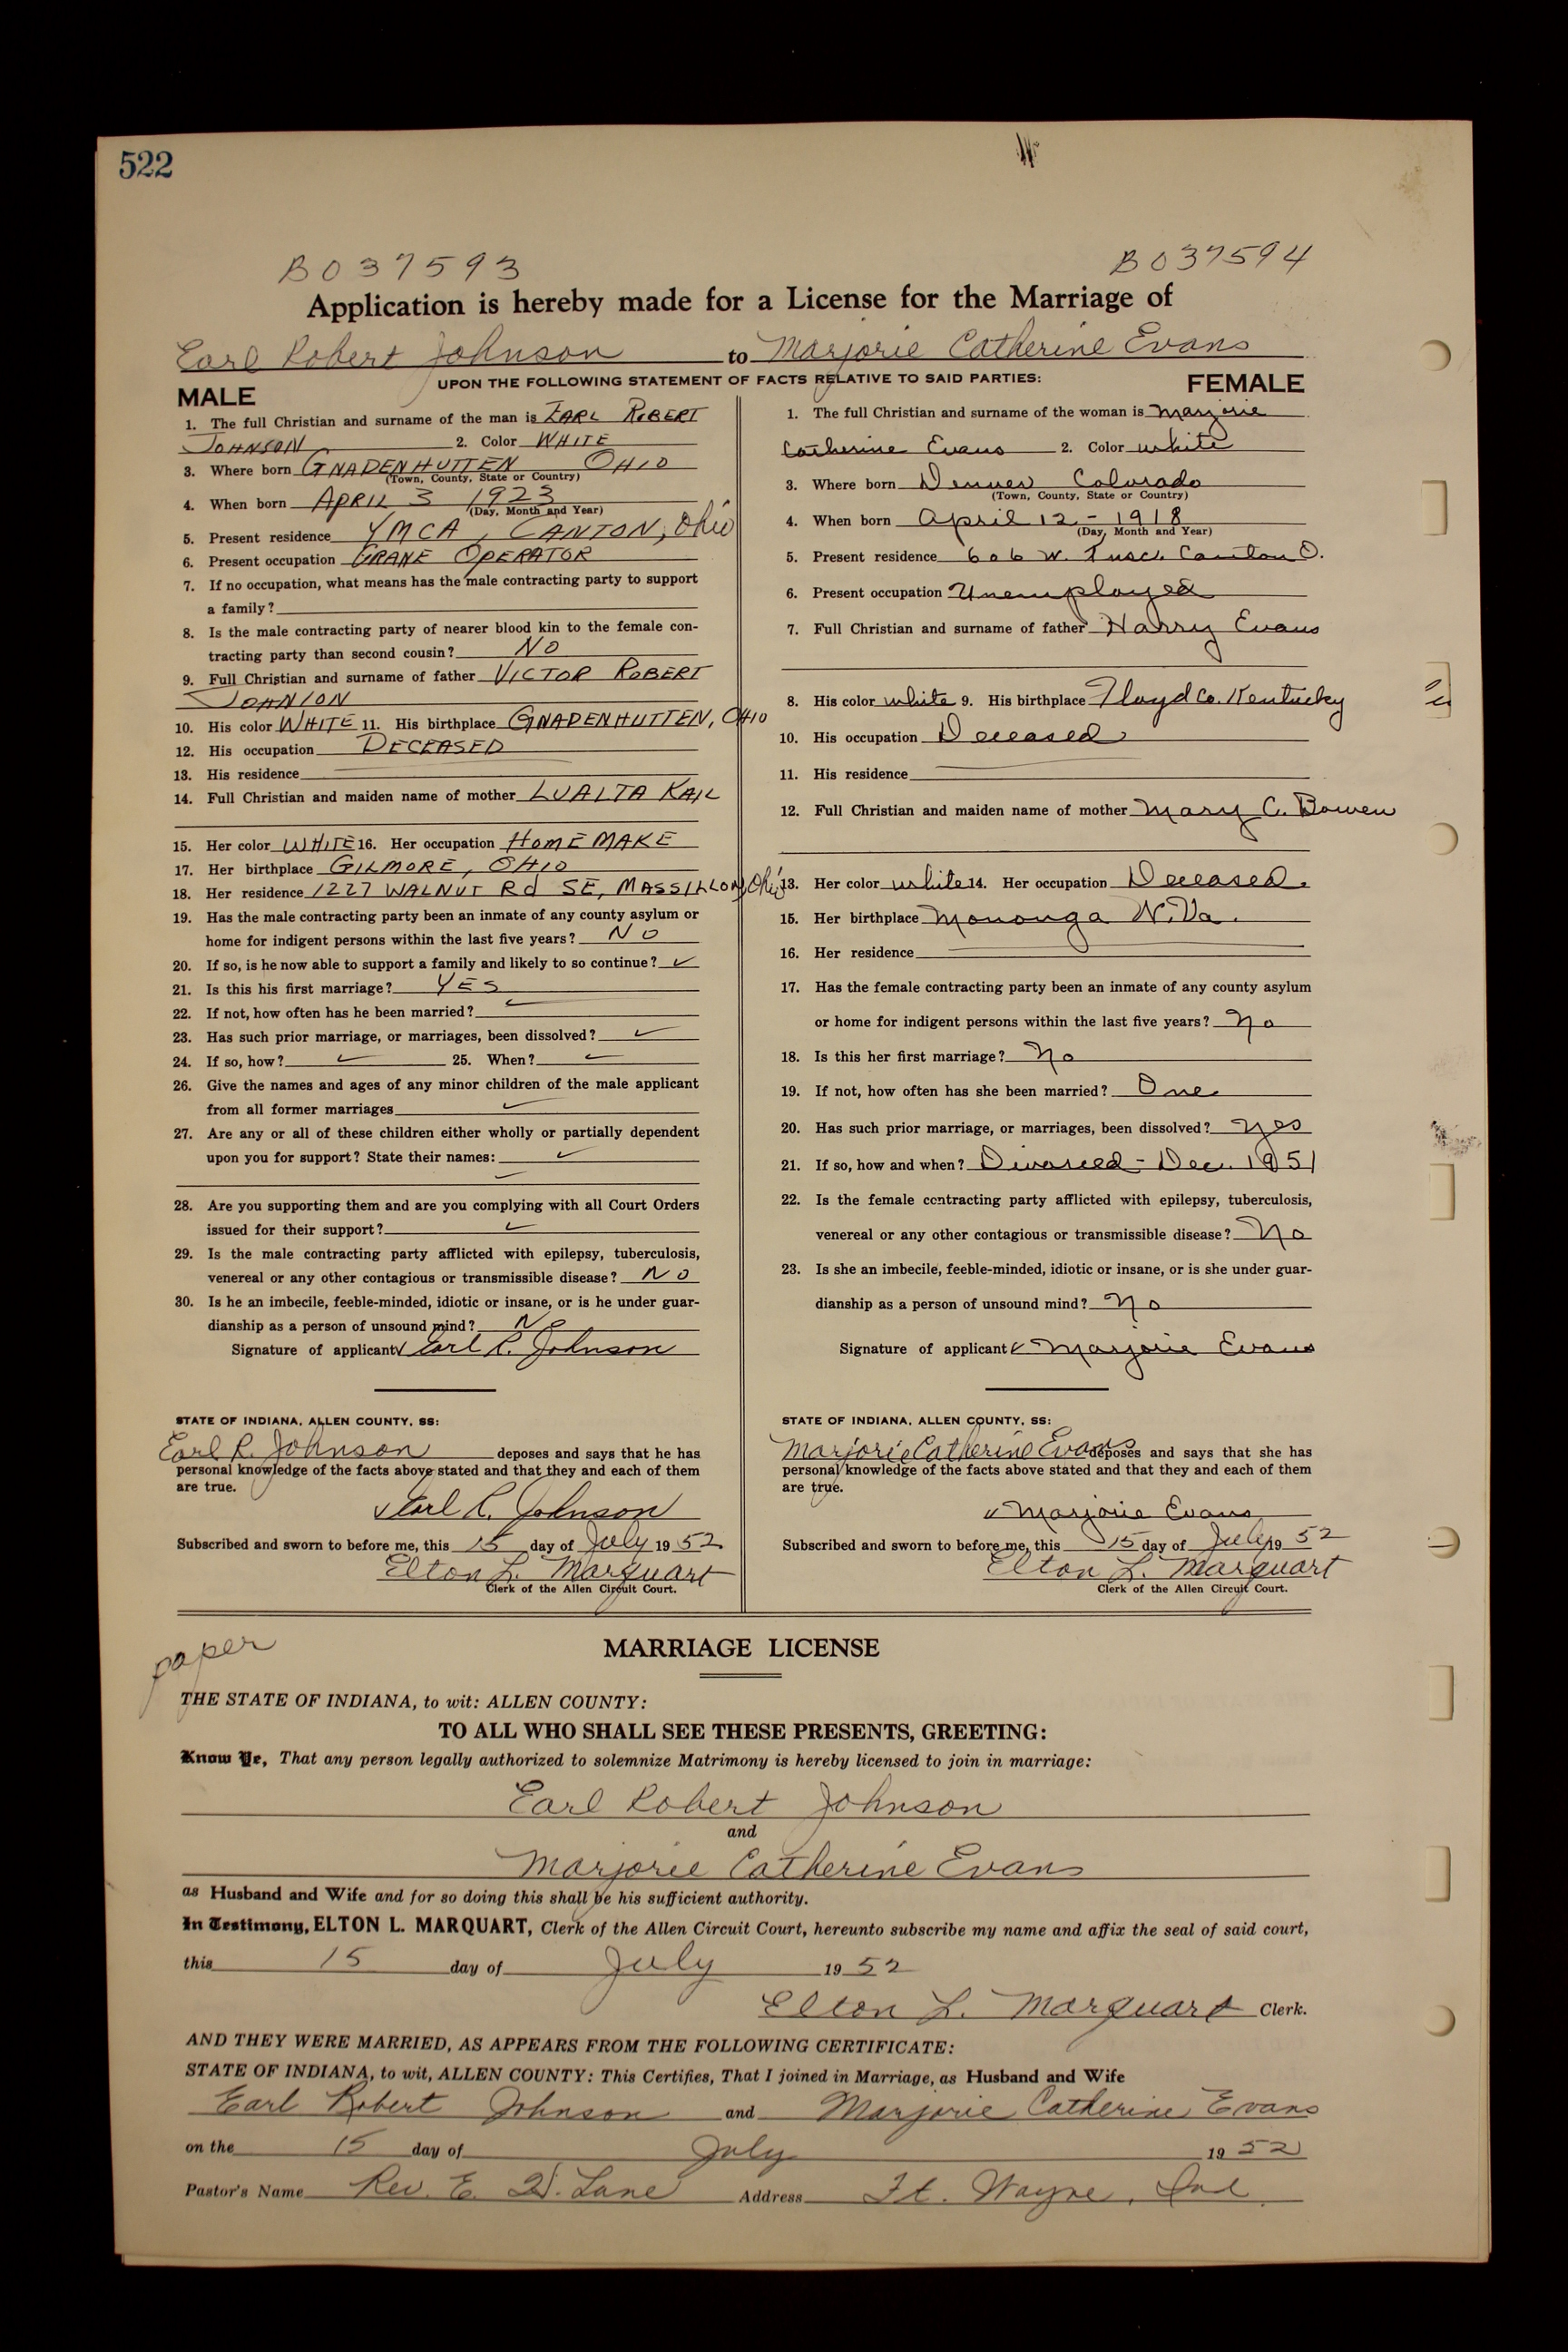 522
B037593
B037594
Application is hereby made for a License for the Marriage of
Earl Robert Johnson to Marjorie Catherine Evans
UPON THE FOLLOWING STATEMENT OF FACTS RELATIVE TO SAID PARTIES:
MALE
1. The full Christian and surname of the man is EARL ROBERT
JOHNSON 2. Color WHITE
3. Where born GNADENHUTTEN OHIO
(Town, County, State or Country)
4. When born APRIL 3 1923
(Day, Month and Year)
5. Present residence YMCA, CANTON, Ohio
6. Present occupation CRANE OPERATOR
7. If no occupation, what means has the male contracting party to support
a family?
8. Is the male contracting party of nearer blood kin to the female con-
tracting party than second cousin? NO
9. Full Christian and surname of father VICTOR ROBERT
JOHNSON
10. His color WHITE 11. His birthplace GNADENHUTTEN, OHIO
12. His occupation DECEASED
13. His residence
14. Full Christian and maiden name of mother LUALTA KAIL
15. Her color WHITE 16. Her occupation HOMEMAKE
17. Her birthplace GILMORE, OHIO
18. Her residence 1227 WALNUT Rd SE, MASSILLON, Ohio
19. Has the male contracting party been an inmate of any county asylum or
home for indigent persons within the last five years? NO
20. If so, is he now able to support a family and likely to so continue? ✓
21. Is this his first marriage? YES
22. If not, how often has he been married? ✓
23. Has such prior marriage, or marriages, been dissolved? ✓
24. If so, how? ✓ 25. When? ✓
26. Give the names and ages of any minor children of the male applicant
from all former marriages ✓
27. Are any or all of these children either wholly or partially dependent
upon you for support? State their names: ✓
✓
28. Are you supporting them and are you complying with all Court Orders
issued for their support? ✓
29. Is the male contracting party afflicted with epilepsy, tuberculosis,
venereal or any other contagious or transmissible disease? NO
30. Is he an imbecile, feeble-minded, idiotic or insane, or is he under guar-
dianship as a person of unsound mind? No
Signature of applicant ✓ Earl R. Johnson
STATE OF INDIANA, ALLEN COUNTY, SS:
Earl R. Johnson deposes and says that he has
personal knowledge of the facts above stated and that they and each of them
are true.
✓ Earl R. Johnson
Subscribed and sworn to before me, this 15 day of July 19 52
Elton L. Marquart
Clerk of the Allen Circuit Court.
FEMALE
1. The full Christian and surname of the woman is Marjorie
Catherine Evans 2. Color white
3. Where born Denver Colorado
(Town, County, State or Country)
4. When born April 12 - 1918
(Day, Month and Year)
5. Present residence 606 W. Tusc. Canton O.
6. Present occupation Unemployed
7. Full Christian and surname of father Harry Evans
8. His color white 9. His birthplace Floyd Co. Kentucky
10. His occupation Deceased
11. His residence
12. Full Christian and maiden name of mother Mary C. Bowen
13. Her color white 14. Her occupation Deceased.
15. Her birthplace Mononga W.Va.
16. Her residence
17. Has the female contracting party been an inmate of any county asylum
or home for indigent persons within the last five years? No
18. Is this her first marriage? No
19. If not, how often has she been married? One
20. Has such prior marriage, or marriages, been dissolved? yes
21. If so, how and when? Divorced - Dec. 1951
22. Is the female contracting party afflicted with epilepsy, tuberculosis,
venereal or any other contagious or transmissible disease? No
23. Is she an imbecile, feeble-minded, idiotic or insane, or is she under guar-
dianship as a person of unsound mind? No
Signature of applicant ✓ Marjorie Evans
STATE OF INDIANA, ALLEN COUNTY, SS:
Marjorie Catherine Evans deposes and says that she has
personal knowledge of the facts above stated and that they and each of them
are true.
✓ Marjorie Evans
Subscribed and sworn to before me, this 15 day of July 19 52
Elton L. Marquart
Clerk of the Allen Circuit Court.
paper
MARRIAGE LICENSE
THE STATE OF INDIANA, to wit: ALLEN COUNTY:
TO ALL WHO SHALL SEE THESE PRESENTS, GREETING:
Know Ye, That any person legally authorized to solemnize Matrimony is hereby licensed to join in marriage:
Earl Robert Johnson
and
Marjorie Catherine Evans
as Husband and Wife and for so doing this shall be his sufficient authority.
In Testimony, ELTON L. MARQUART, Clerk of the Allen Circuit Court, hereunto subscribe my name and affix the seal of said court,
this 15 day of July 19 52
Elton L. Marquart Clerk.
AND THEY WERE MARRIED, AS APPEARS FROM THE FOLLOWING CERTIFICATE:
STATE OF INDIANA, to wit, ALLEN COUNTY: This Certifies, That I joined in Marriage, as Husband and Wife
Earl Robert Johnson and Marjorie Catherine Evans
on the 15 day of July 19 52
Pastor's Name Rev. E. W. Lane Address Ft. Wayne, Ind.